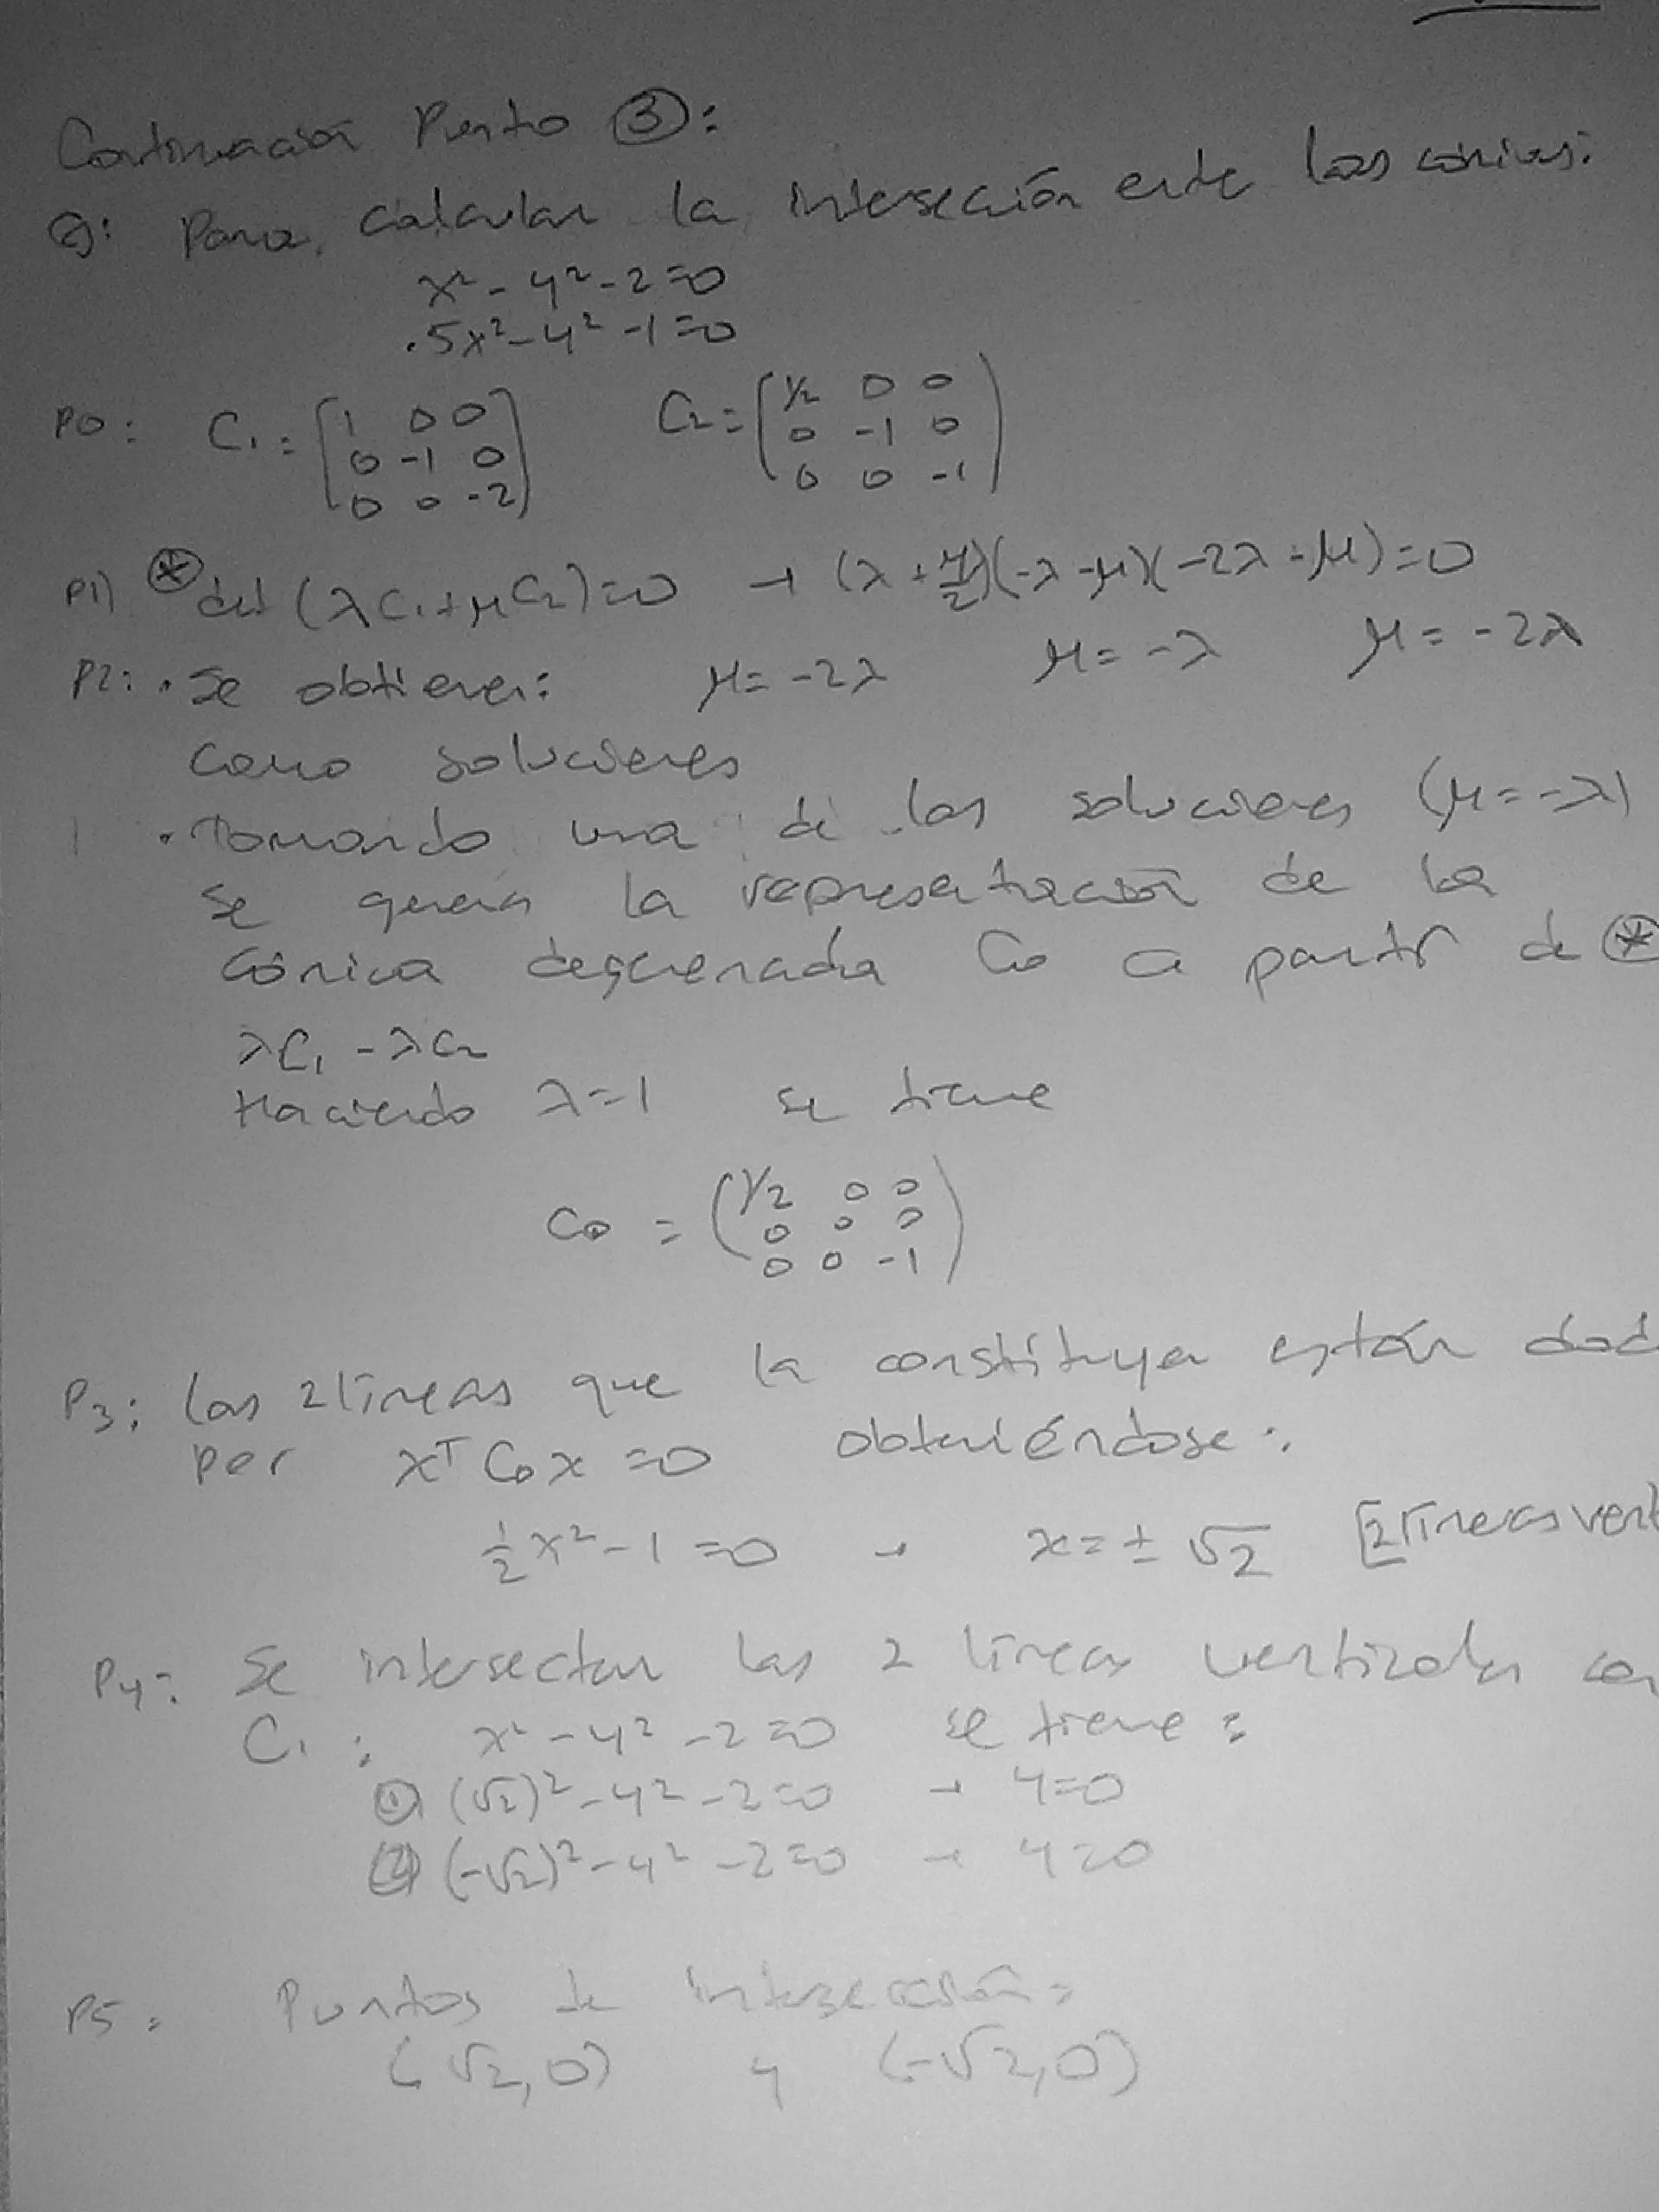 Continuación Punto ③:
Para calcular la interseción entre las cónicas:
x² - y² - 2 = 0
.5x² - y² - 1 = 0
P0: C₁ = [1 0 0 C₂ = (1/2 0 0
0 -1 0 0 -1 0
0 0 -2] 0 0 -1)
P1) ⊛ det (λC₁ + μC₂) = 0 → (λ + μ/2)(-λ - μ)(-2λ - μ) = 0
P2: • Se obtienen: μ = -2λ μ = -λ μ = -2λ
como soluciones
• Tomando una de las soluciones (μ = -λ)
se genera la representación de la
cónica degenerada C₀ a partir de ⊛
λC₁ - λC₂
Haciendo λ = 1 se tiene
C₀ = (1/2 0 0
0 0 0
0 0 -1)
P3: Las 2 líneas que la constituyen están dad
por xᵀ C₀ x = 0 obteniéndose:
1/2 x² - 1 = 0 → x = ± √2 [2 líneas vert
P4: Se intersectan las 2 líneas verticales con
C₁: x² - y² - 2 = 0 se tiene:
① (√2)² - y² - 2 = 0 → y = 0
② (-√2)² - y² - 2 = 0 → y = 0
P5: Puntos de intersección:
(√2, 0) y (-√2, 0)